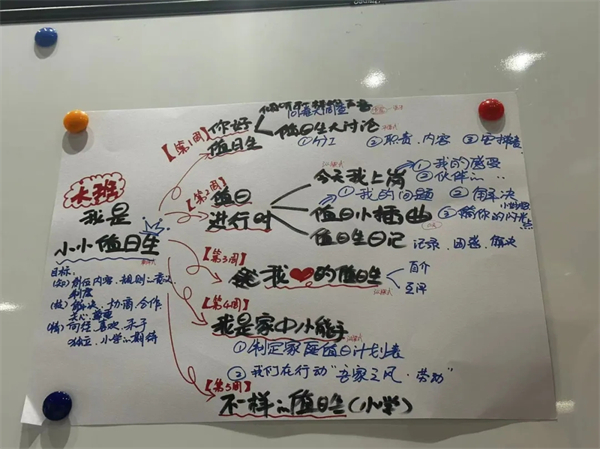 大班
我是
小小值日生
目标:
(知) 岗位内容、规则
制度
解决、协商、合作
关心、尊重
(情) 向往、喜欢、乐于
独立、小学
【第1周】
你好
值日生
问卷大调查
值日生大讨论
①分工 ②职责、内容 ③安排表
【第2周】
值日
进行时
今天我上岗
①我的感受
②伙伴
值日小插曲
①我的问题 ②解决
③给你的闪光点
值日生日记
记录、困惑、解决
【第3周】
我❤的值日生
自介
互评
【第4周】
我是家中小能手
①制定家庭值日计划表
②我们在行动“吾家之风·劳动”
【第5周】
不一样的值日生(小学)